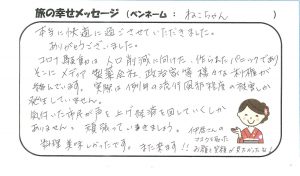 旅の幸せメッセージ（ペンネーム： ねこちゃん ）
本当に快適に過ごさせていただきました。
ありがとうございました。
コロナ騒動は人口削減に向けた、作られたパニックであり
そこにメディア製薬会社、政治家等様々な利権が
絡んでいます。実際は例年の流行風邪程度の被害しか
発生していません。
気付いた市民が声を上げ経済を回していくしか
ありません。頑張っていきましょう。
料理美味しかったです。また来ます!!
仲居さんの
マスク
お顔と笑顔が見たかったな!